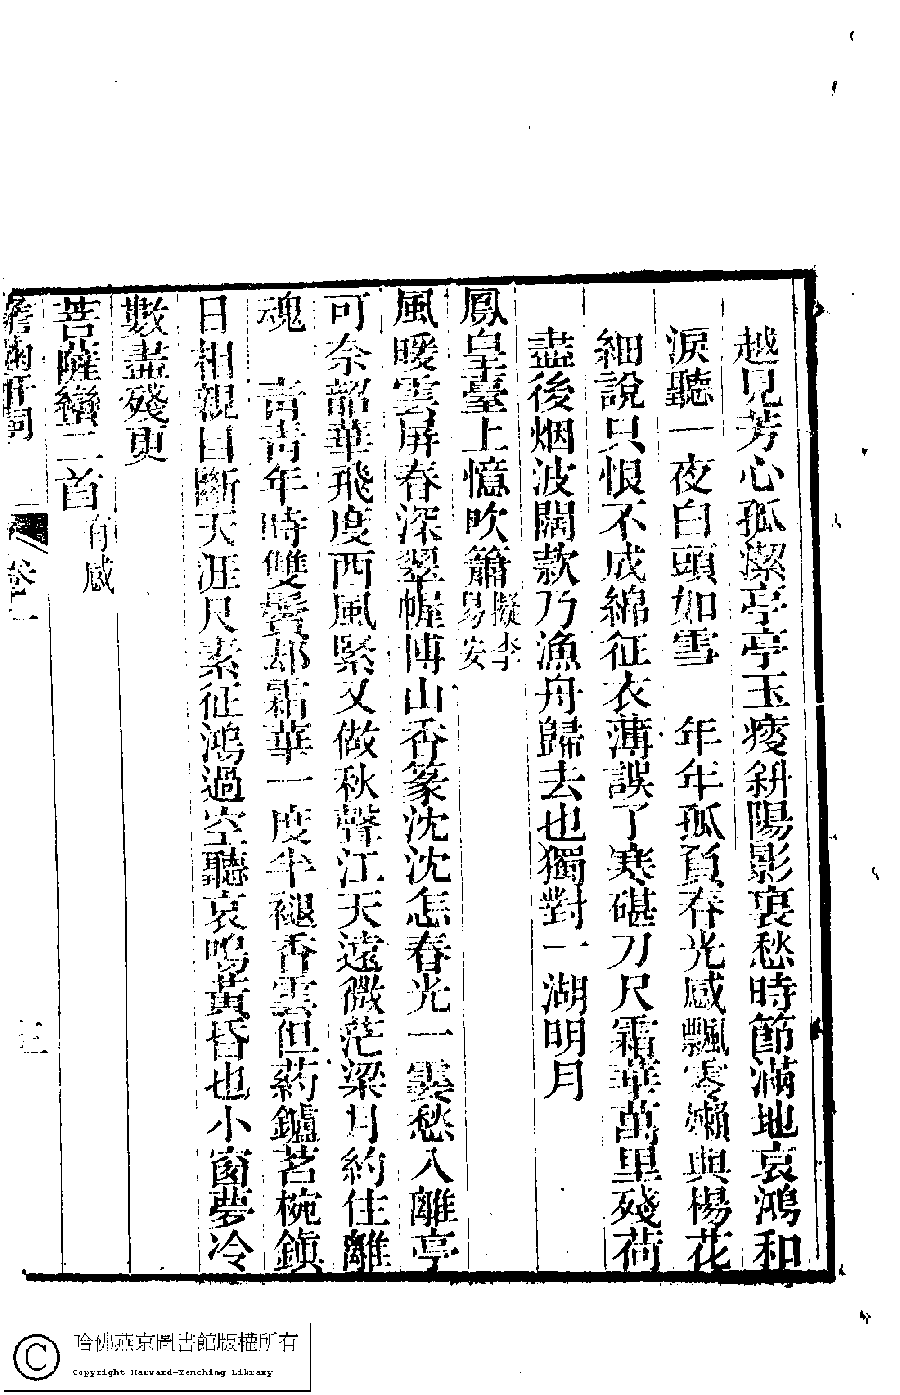 越見芳心孤潔亭亭玉瘦斜陽影裏愁時節滿地哀鴻和
淚聽一夜白頭如雪　年年孤負春光感飄零嬾與楊花
細說只恨不成綿征衣薄誤了寒碪刀尺霜華萬里殘荷
盡後烟波闊款乃漁舟歸去也獨對一湖明月
鳳皇臺上憶吹簫擬李易安
風暖雲屏春深翠幄博山香篆沈沈怎春光一霎愁入離亭
可奈韶華飛度西風緊又做秋聲江天遠微茫梁月約住離
魂　青青年時雙鬢却霜華一度半褪香雲但葯鑪茗椀鎮
日相親目斷天涯尺素征鴻過空聽哀鳴黃昏也小窗夢冷
數盡殘更
菩薩蠻二首有感
詞
卷二
哈佛燕京圖書館版權所有
Copyright Harvard-Yenching Library